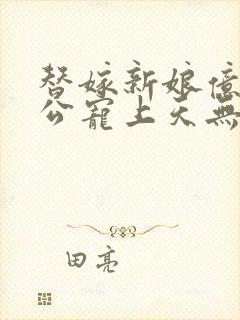 替嫁新娘億
公寵上天無
田亮